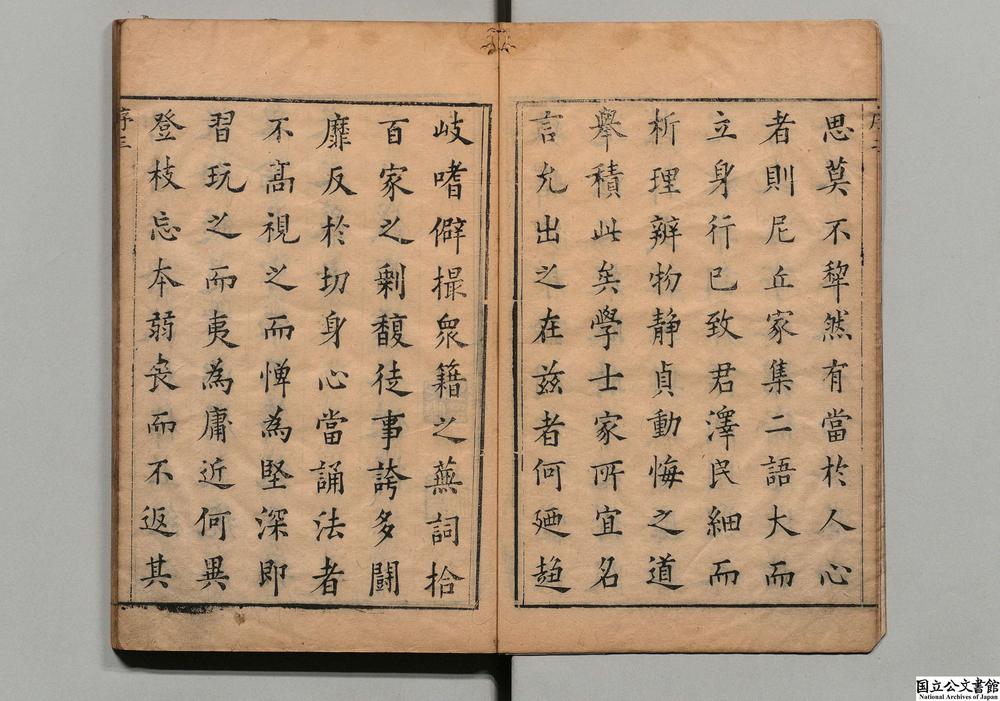 思莫不犂然有當於人心
者則尼丘家集二語大而
立身行已致君澤民細而
析理辨物静貞動悔之道
舉積此矣學士家所宜名
言允出之在兹者何廼趨
岐嗜僻撮衆籍之蕪詞拾
百家之剩馥徒事誇多鬪
靡反於切身心當誦法者
不高視之而憚為堅深即
習玩之而夷為庸近何異
登枝忘本弱喪而不返其
序三
国立公文書館
National Archives of Japan